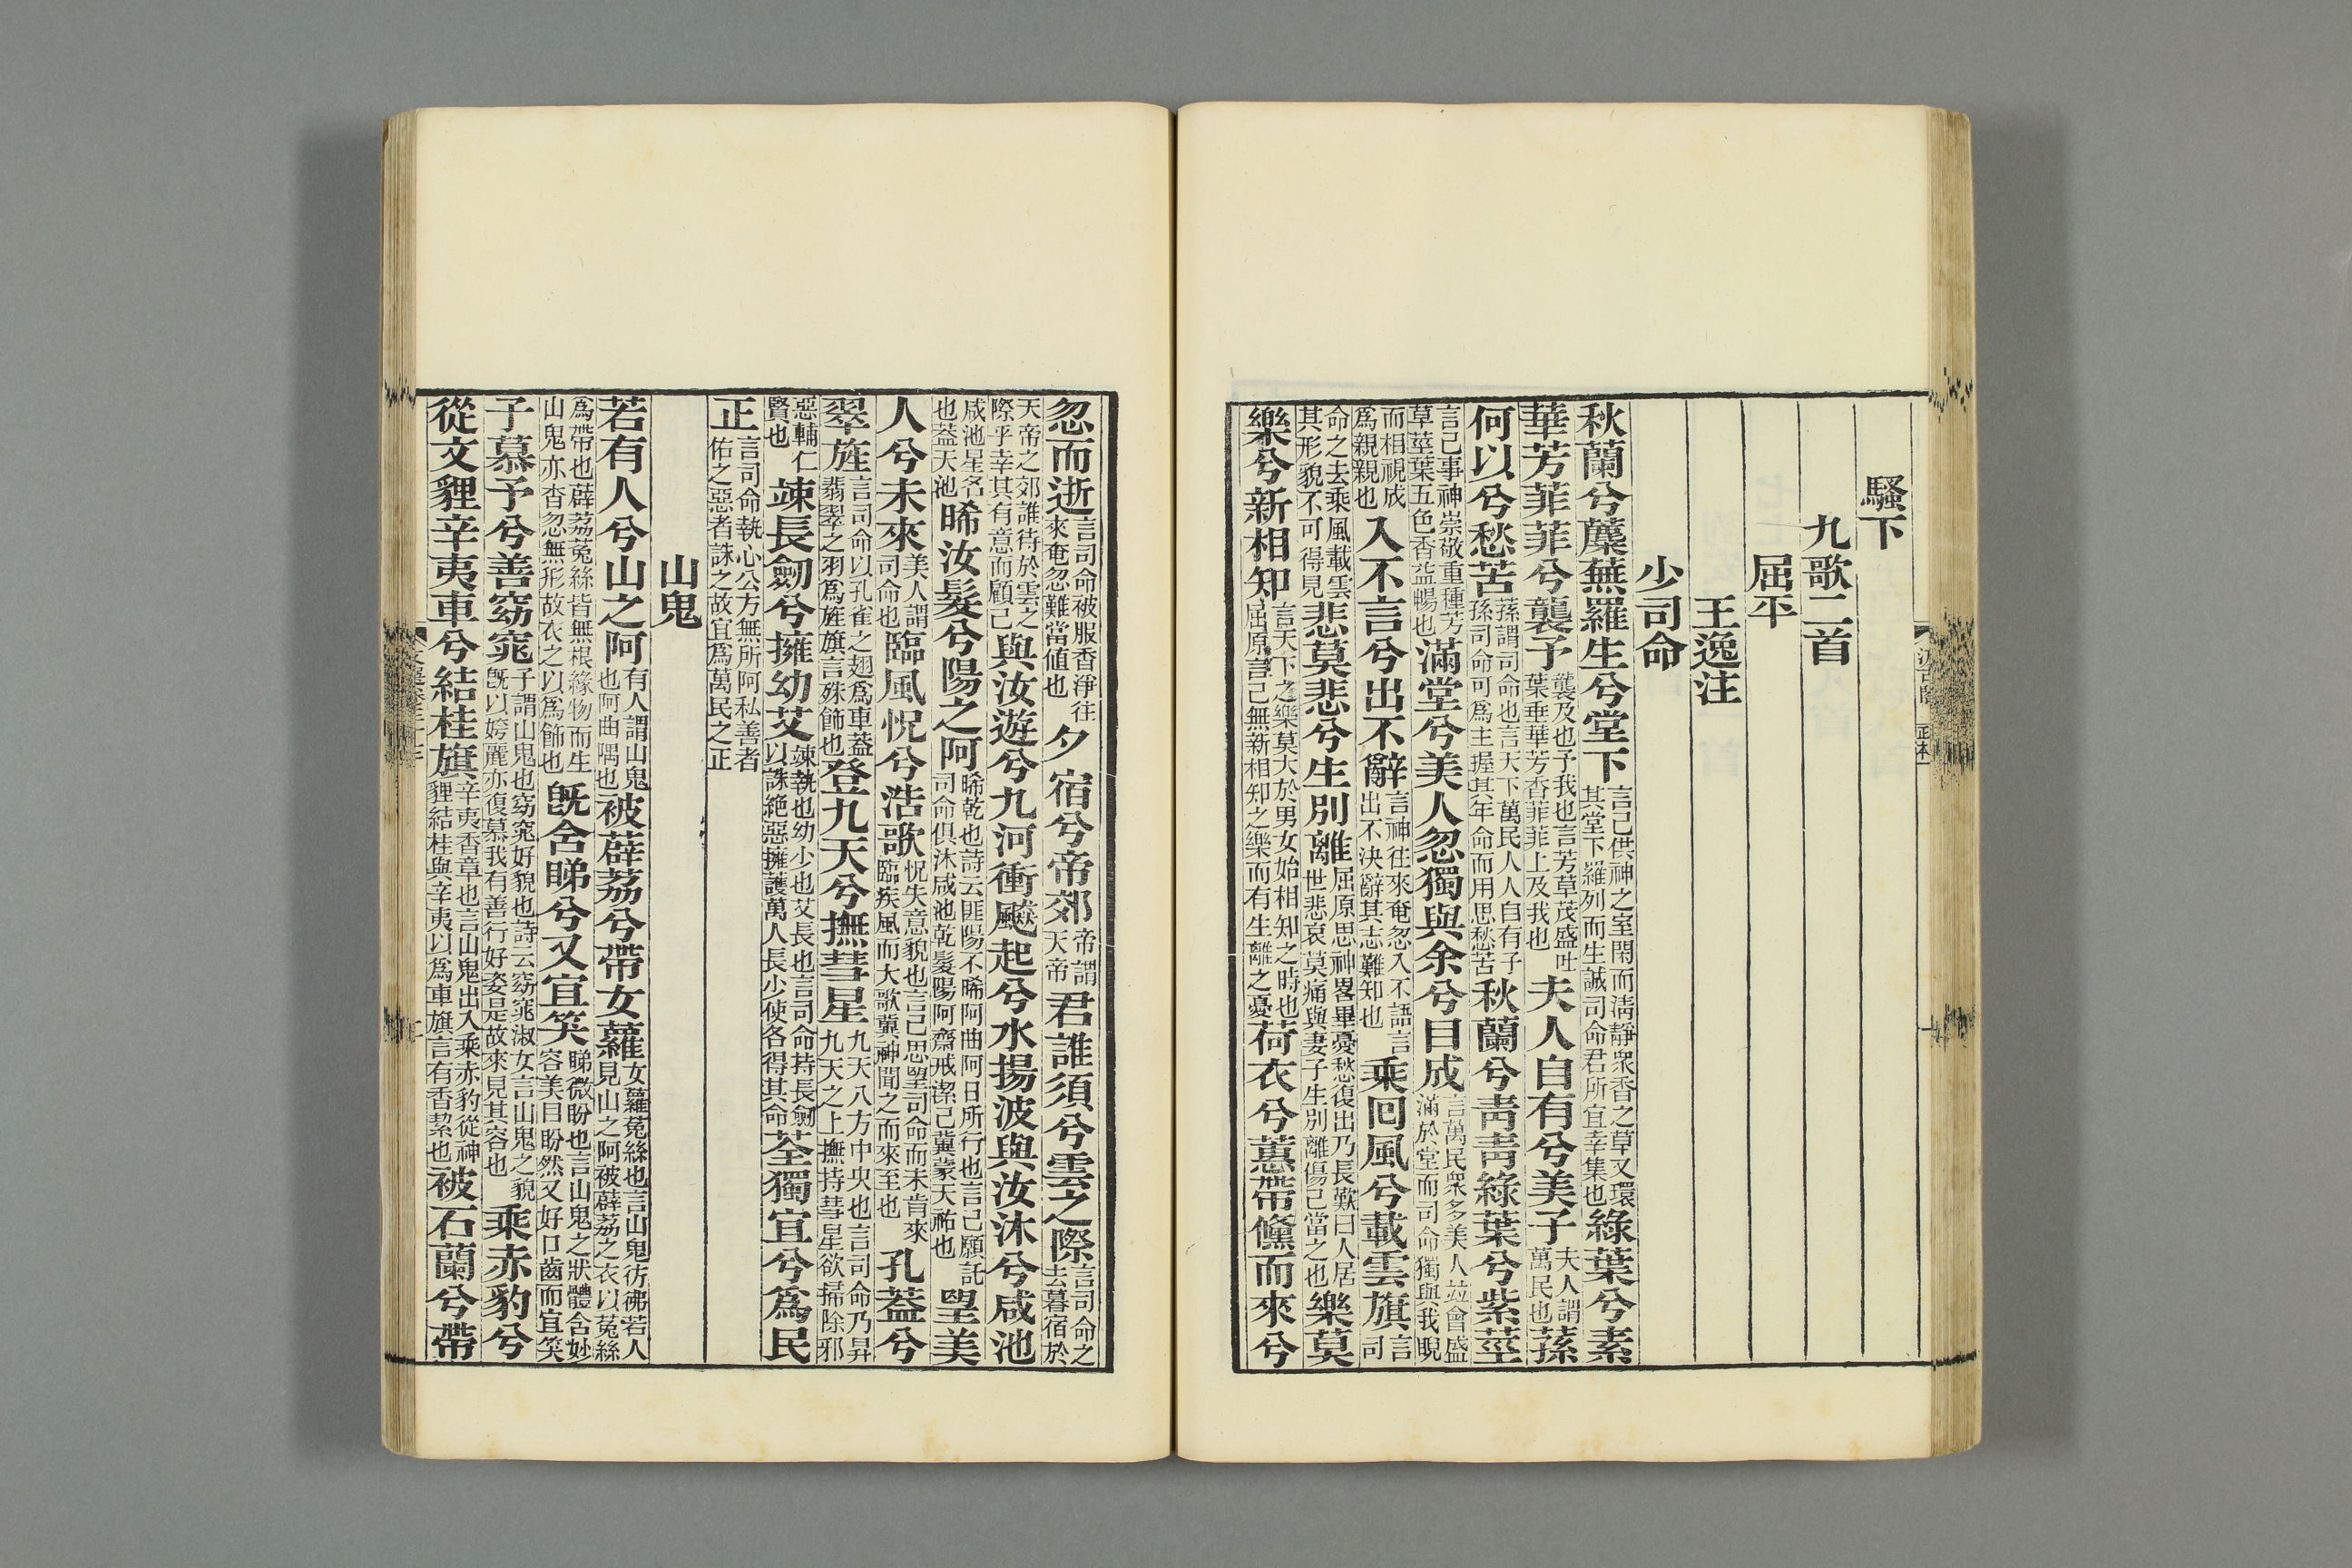 騷下
九歌二首
屈平
王逸注
少司命
秋蘭兮蘪蕪羅生兮堂下言己供神之室閑而淸靜衆香之草又環其堂下羅列而生誠司命君所宜幸集也綠葉兮素
華芳菲菲兮襲予襲及也予我也言芳草茂盛吐葉垂華芳香菲菲上及我也夫人自有兮美子夫人謂萬民也蓀
何以兮愁苦蓀謂司命也言天下萬民人人自有子孫司命可爲主握其年命而用思愁苦秋蘭兮靑靑綠葉兮紫莖
言己事神崇敬重種芳草莖葉五色香益暢也滿堂兮美人忽獨與余兮目成言萬民衆多美人並會盛滿於堂而司命獨與我睨
而相視成爲親親也入不言兮出不辭言神往來奄忽入不語言出不決辭其志難知也乘囘風兮載雲旗言司
命之去乘風載雲其形貌不可得見悲莫悲兮生別離屈原思神畧畢憂愁復出乃長歎曰人居世悲哀莫痛與妻子生別離傷己當之也樂莫
樂兮新相知言天下之樂莫大於男女始相知之時也屈原言己無新相知之樂而有生離之憂荷衣兮蕙帶儵而來兮
忽而逝言司命被服香淨往來奄忽難當値也夕宿兮帝郊帝謂天帝君誰須兮雲之際言司命之去暮宿於
天帝之郊誰待於雲之際乎幸其有意而顧己與汝遊兮九河衝飈起兮水揚波與汝沐兮咸池
咸池星名也葢天池晞汝髮兮陽之阿晞乾也詩云匪陽不晞阿曲阿日所行也言己願託司命俱沐咸池乾髮陽阿齋戒潔己冀蒙天祐也望美
人兮未來美人謂司命也臨風怳兮浩歌怳失意貌也言己思望司命而未肯來臨疾風而大歌冀神聞之而來至也孔葢兮
翠旌言司命以孔雀之翅爲車葢翡翠之羽爲旌旗言殊飾也登九天兮撫彗星九天八方中央也言司命乃昇九天之上撫持彗星欲掃除邪
惡輔仁賢也竦長劒兮擁幼艾竦執也幼少也艾長也言司命持長劒以誅絶惡擁護萬人長少使各得其命荃獨宜兮爲民
正言司命執心公方無所阿私善者佑之惡者誅之故宜爲萬民之正
山鬼
若有人兮山之阿有人謂山鬼也阿曲隅也被薜荔兮帶女蘿女蘿菟絲也言山鬼彷彿若人見山之阿被薜荔之衣以菟絲
爲帶也薜荔菟絲皆無根緣物而生山鬼亦杳忽無形故衣之以爲飾也旣含睇兮又宜笑睇微盼也言山鬼之狀體含妙容美目盼然又好口齒而宜笑
子慕予兮善窈窕子謂山鬼也窈窕好貌也詩云窈窕淑女言山鬼之貌旣以姱麗亦復慕我有善行好姿是故來見其容也乘赤豹兮
從文貍辛夷車兮結桂旗辛夷香草也言山鬼出入乘赤豹從神貍結桂與辛夷以爲車旗言有香絜也被石蘭兮帶